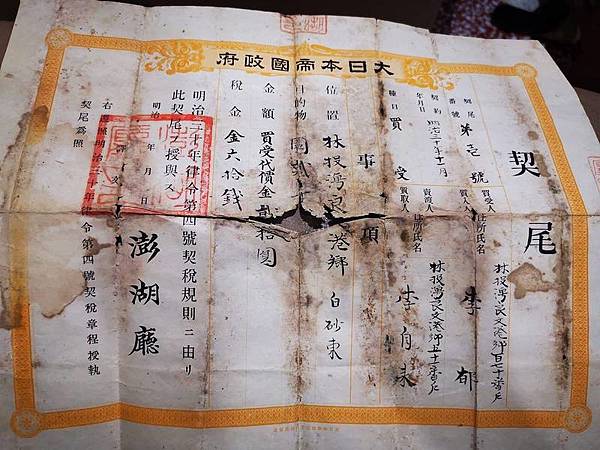 大日本帝國政府
契尾
契尾番號 第壱號
契約年月日 明治三十年十一月
種目 買受
買受人 住所氏名 林投灣良文港鄉百七十番戶 李郁
賣渡人 住所氏名 林投灣良文港鄉
質取人
事項
位置 林投灣良文港鄉 白砂東
目的物
金額 買受代價金貳拾圓
稅金 金六拾錢
明治三十年律令第四號契稅規則ニ由リ
此契尾ヲ授與ス
明治 年 月 日
澎湖廳
譯文
右遵照明治三十年律令第四號契稅章程授執
契尾爲照